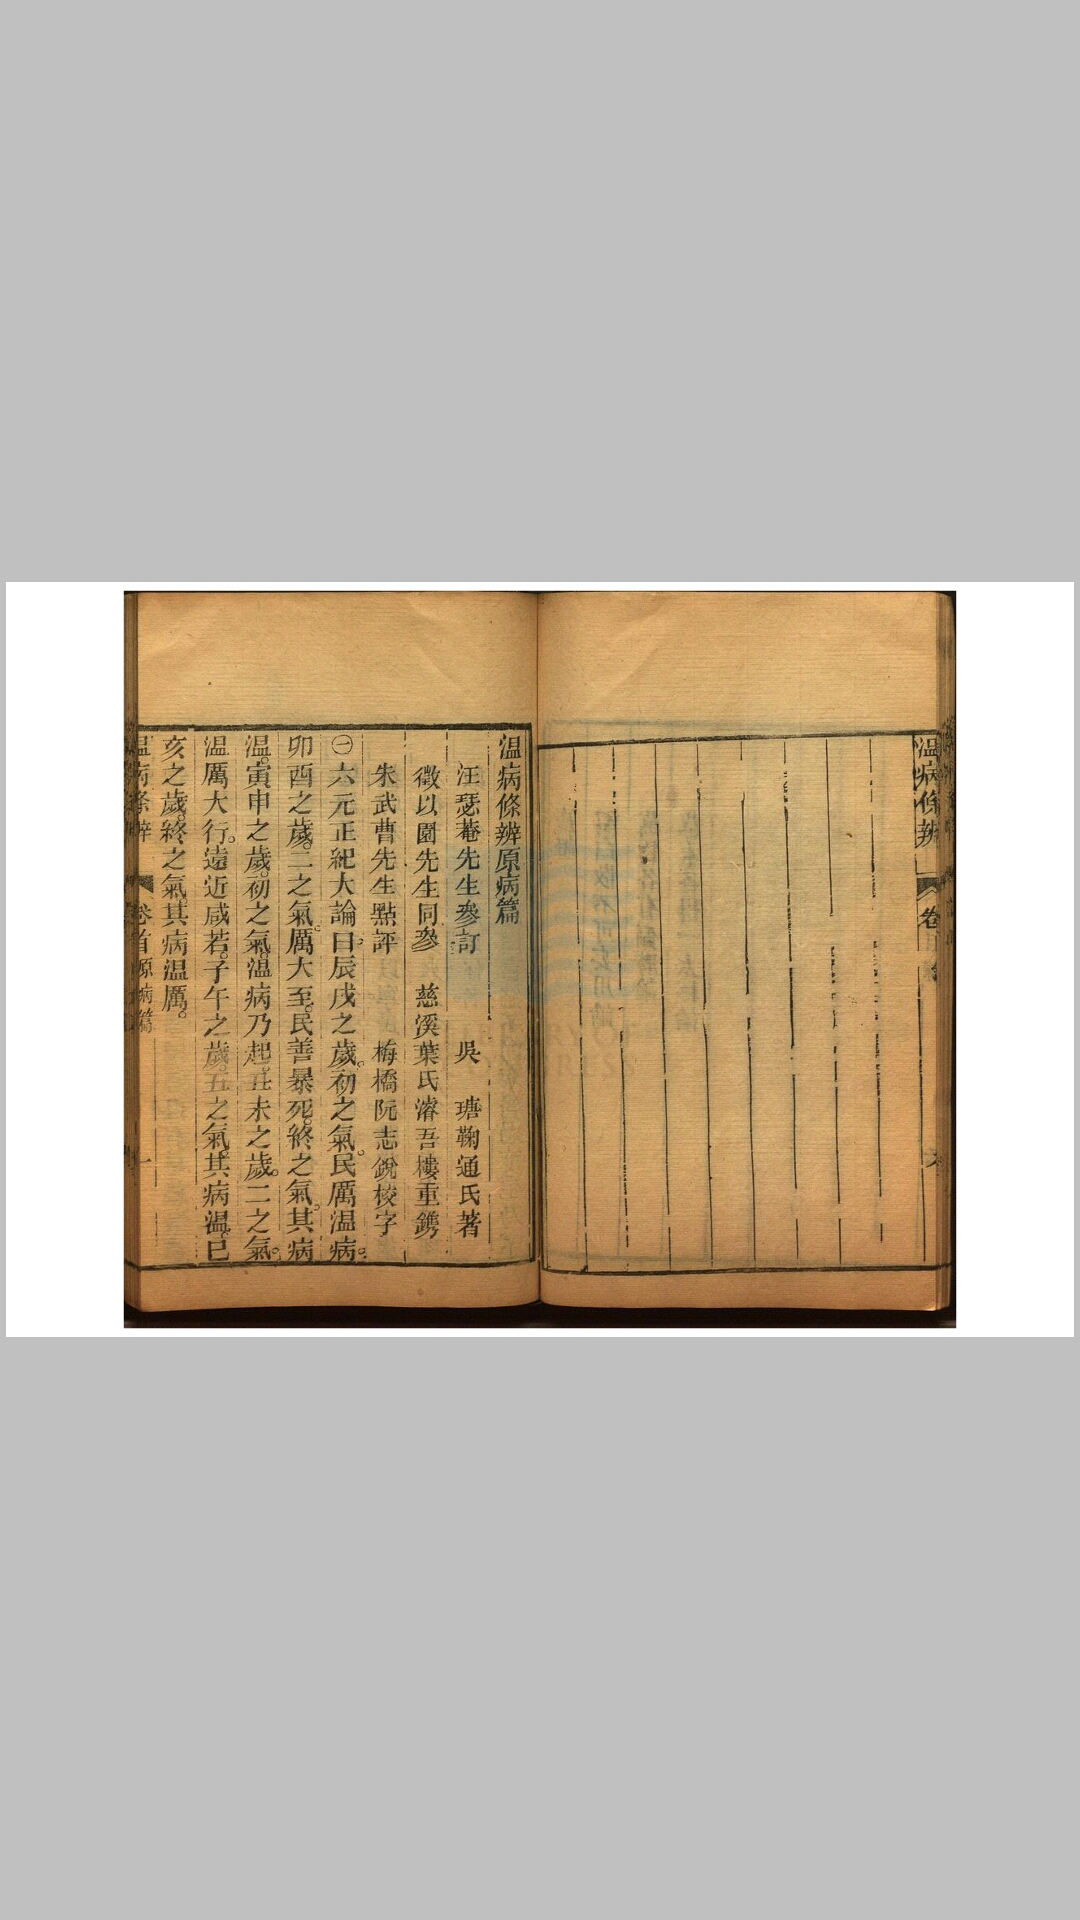 溫病條辨
卷
溫病條辨原病篇
汪瑟菴先生參訂　吳　瑭鞠通氏著
徵以園先生同參　慈溪葉氏濬吾樓重鐫
朱武曹先生點評　梅橋阮志銳校字
㊀六元正紀大論曰辰戌之歲。初之氣。民厲溫病。
卯酉之歲。二之氣。厲大至。民善暴死。終之氣。其病
溫。寅申之歲。初之氣。溫病乃起。丑未之歲。二之氣。
溫厲大行。遠近咸若。子午之歲。五之氣。其病溫。巳
亥之歲。終之氣。其病溫厲。
溫病條辨　卷首原病篇　一